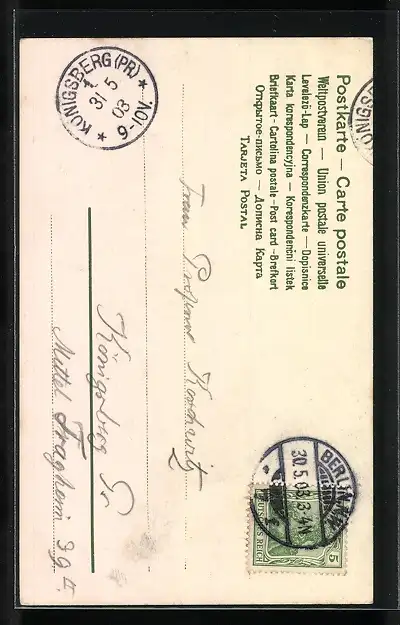 Postkarte — Carte postale
Weltpostverein — Union postale universelle
Levelező-Lap — Correspondenzkarte — Dopisnice
Karta korespondencyjna — Korespondenční lístek
Briefkaart - Cartolina postale - Post card - Brefkort
Открытое письмо — Дописна Карта
TARJETA POSTAL
KÖNIGSBERG (PR)
31 5 03
9-10V.
BERLIN
30.5.03.3-4N
5
REICH
Frau Professor
Königsberg Pr
Mittel Tragheim 39 II.